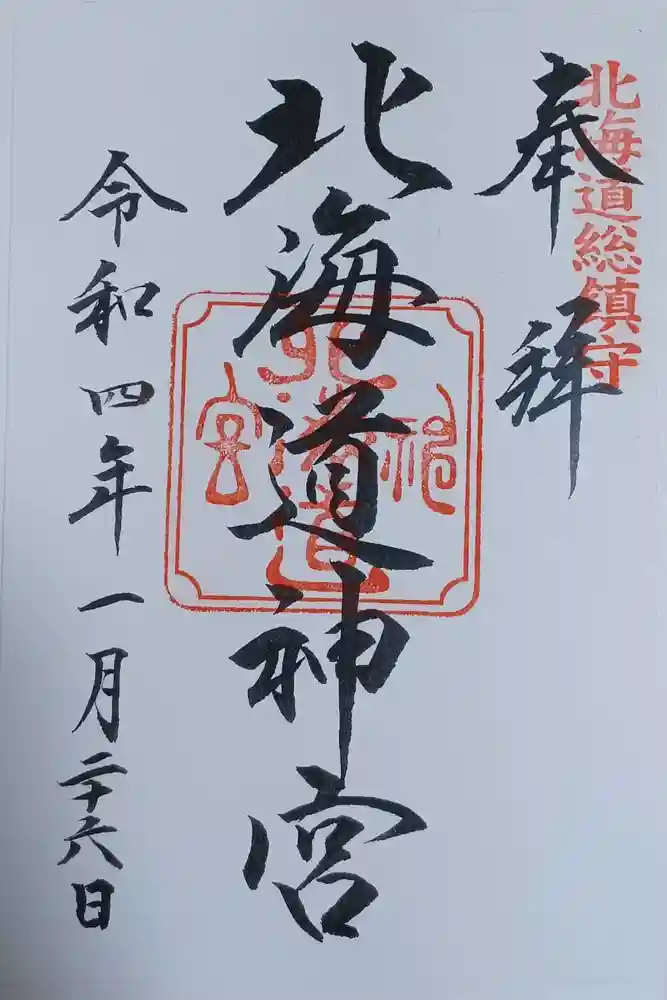 北海道総鎮守
奉拝
北海道神宮
北海道神宮
令和四年一月二十六日